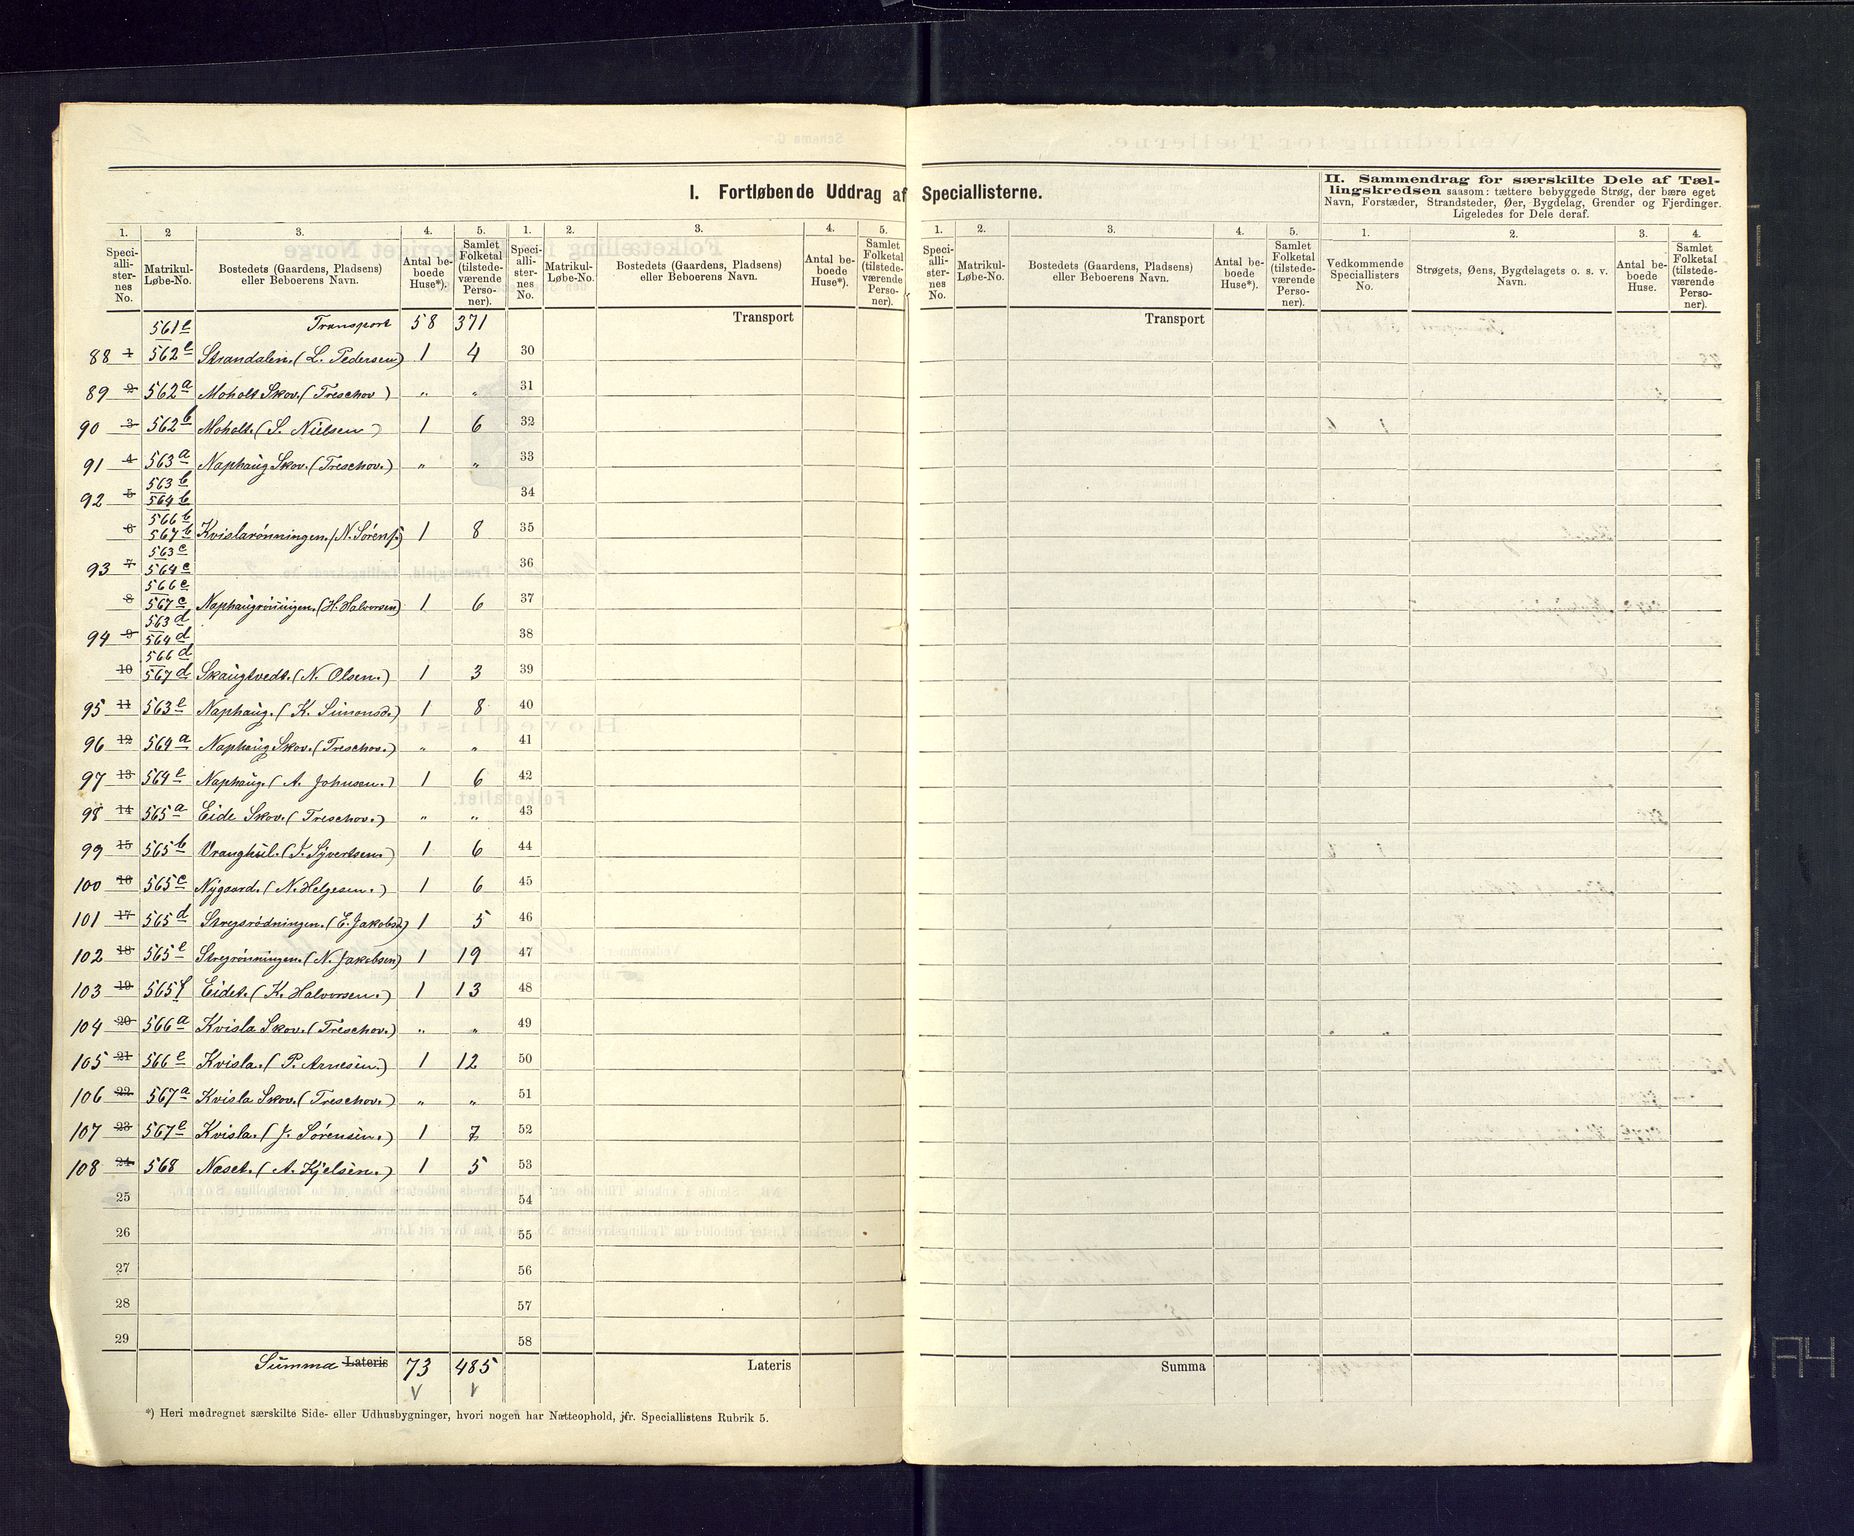 I. Fortløbende Uddrag af Speciallisterne.
II. Sammendrag for særskilte Dele af Tællingskredsen saasom: tættere bebyggede Strøg, der bære eget Navn, Forstæder, Strandsteder, Øer, Bygdelag, Grender og Fjerdinger. Ligeledes for Dele deraf.
1. 2 3. 4. 5. 1. 2. 3. 4. 5. 1. 2. 3. 4. 5. 1. 2. 3. 4.
Speciallisternes No. Matrikul-Løbe-No. Bostedets (Gaardens, Pladsens) eller Beboerens Navn. Antal beboede Huse*). Samlet Folketal (tilstedeværende Personer).
Speciallisternes No. Matrikul-Løbe-No. Bostedets (Gaardens, Pladsens) eller Beboerens Navn. Antal beboede Huse*). Samlet Folketal (tilstedeværende Personer).
Speciallisternes No. Matrikul-Løbe-No. Bostedets (Gaardens, Pladsens) eller Beboerens Navn. Antal beboede Huse*). Samlet Folketal (tilstedeværende Personer).
Vedkommende Speciallisters No. Strøgets, Øens, Bygdelagets o. s. v. Navn. Antal beboede Huse. Samlet Folketal (tilstedeværende Personer).
561e Transport 58 371 Transport Transport
88 1 562e Strandalen. (L. Pedersen) 1 4 30
89 2 562a Moholt Skov. (Treschov) " " 31
90 3 562b Moholt. (S. Nielsen) 1 6 32
91 4 563a Naphaug Skov. (Treschov.) " " 33
92 5 563b 564b 34
6 566b 567b Kvislarönningen. (N. Sörens.) 1 8 35
93 7 563c 564c 36
8 566c 567c Naphaugrönningen. (H. Halvorsen) 1 6 37
94 9 563d 564d 38
10 566d 567d Skaugtvedt. (N. Olsen.) 1 3 39
95 11 563e Naphaug. (K. Simonsd.) 1 8 40
96 12 564a Naphaug Skov. (Treschov.) " " 41
97 13 564e Naphaug. (A. Johnsen.) 1 6 42
98 14 565a Eide Skov. (Treschov.) " " 43
99 15 565b Vranghul. (J. Syvertsen.) 1 6 44
100 16 565c Nygaard. (N. Helgesen.) 1 6 45
101 17 565d Stregsrödningen. (E. Jakobsd.) 1 5 46
102 18 565e Stregrönningen. (N. Jakobsen) 1 19 47
103 19 565f Eidet. (K. Halvorsen.) 1 13 48
104 20 566a Kvisla Skov. (Treschov.) " " 49
105 21 566e Kvisla. (P. Arnesen.) 1 12 50
106 22 567a Kvisla Skov. (Treschov.) " " 51
107 23 567e Kvisla. (J. Sörensen.) 1 7 52
108 24 568 Næset. (A. Kjelsen.) 1 5 53
25 54
26 55
27 56
28 57
29 58
Summa Lateris 73 485 Lateris Summa
*) Heri medregnet særskilte Side- eller Udhusbygninger, hvori nogen har Natteophold, jfr. Speciallistens Rubrik 5.